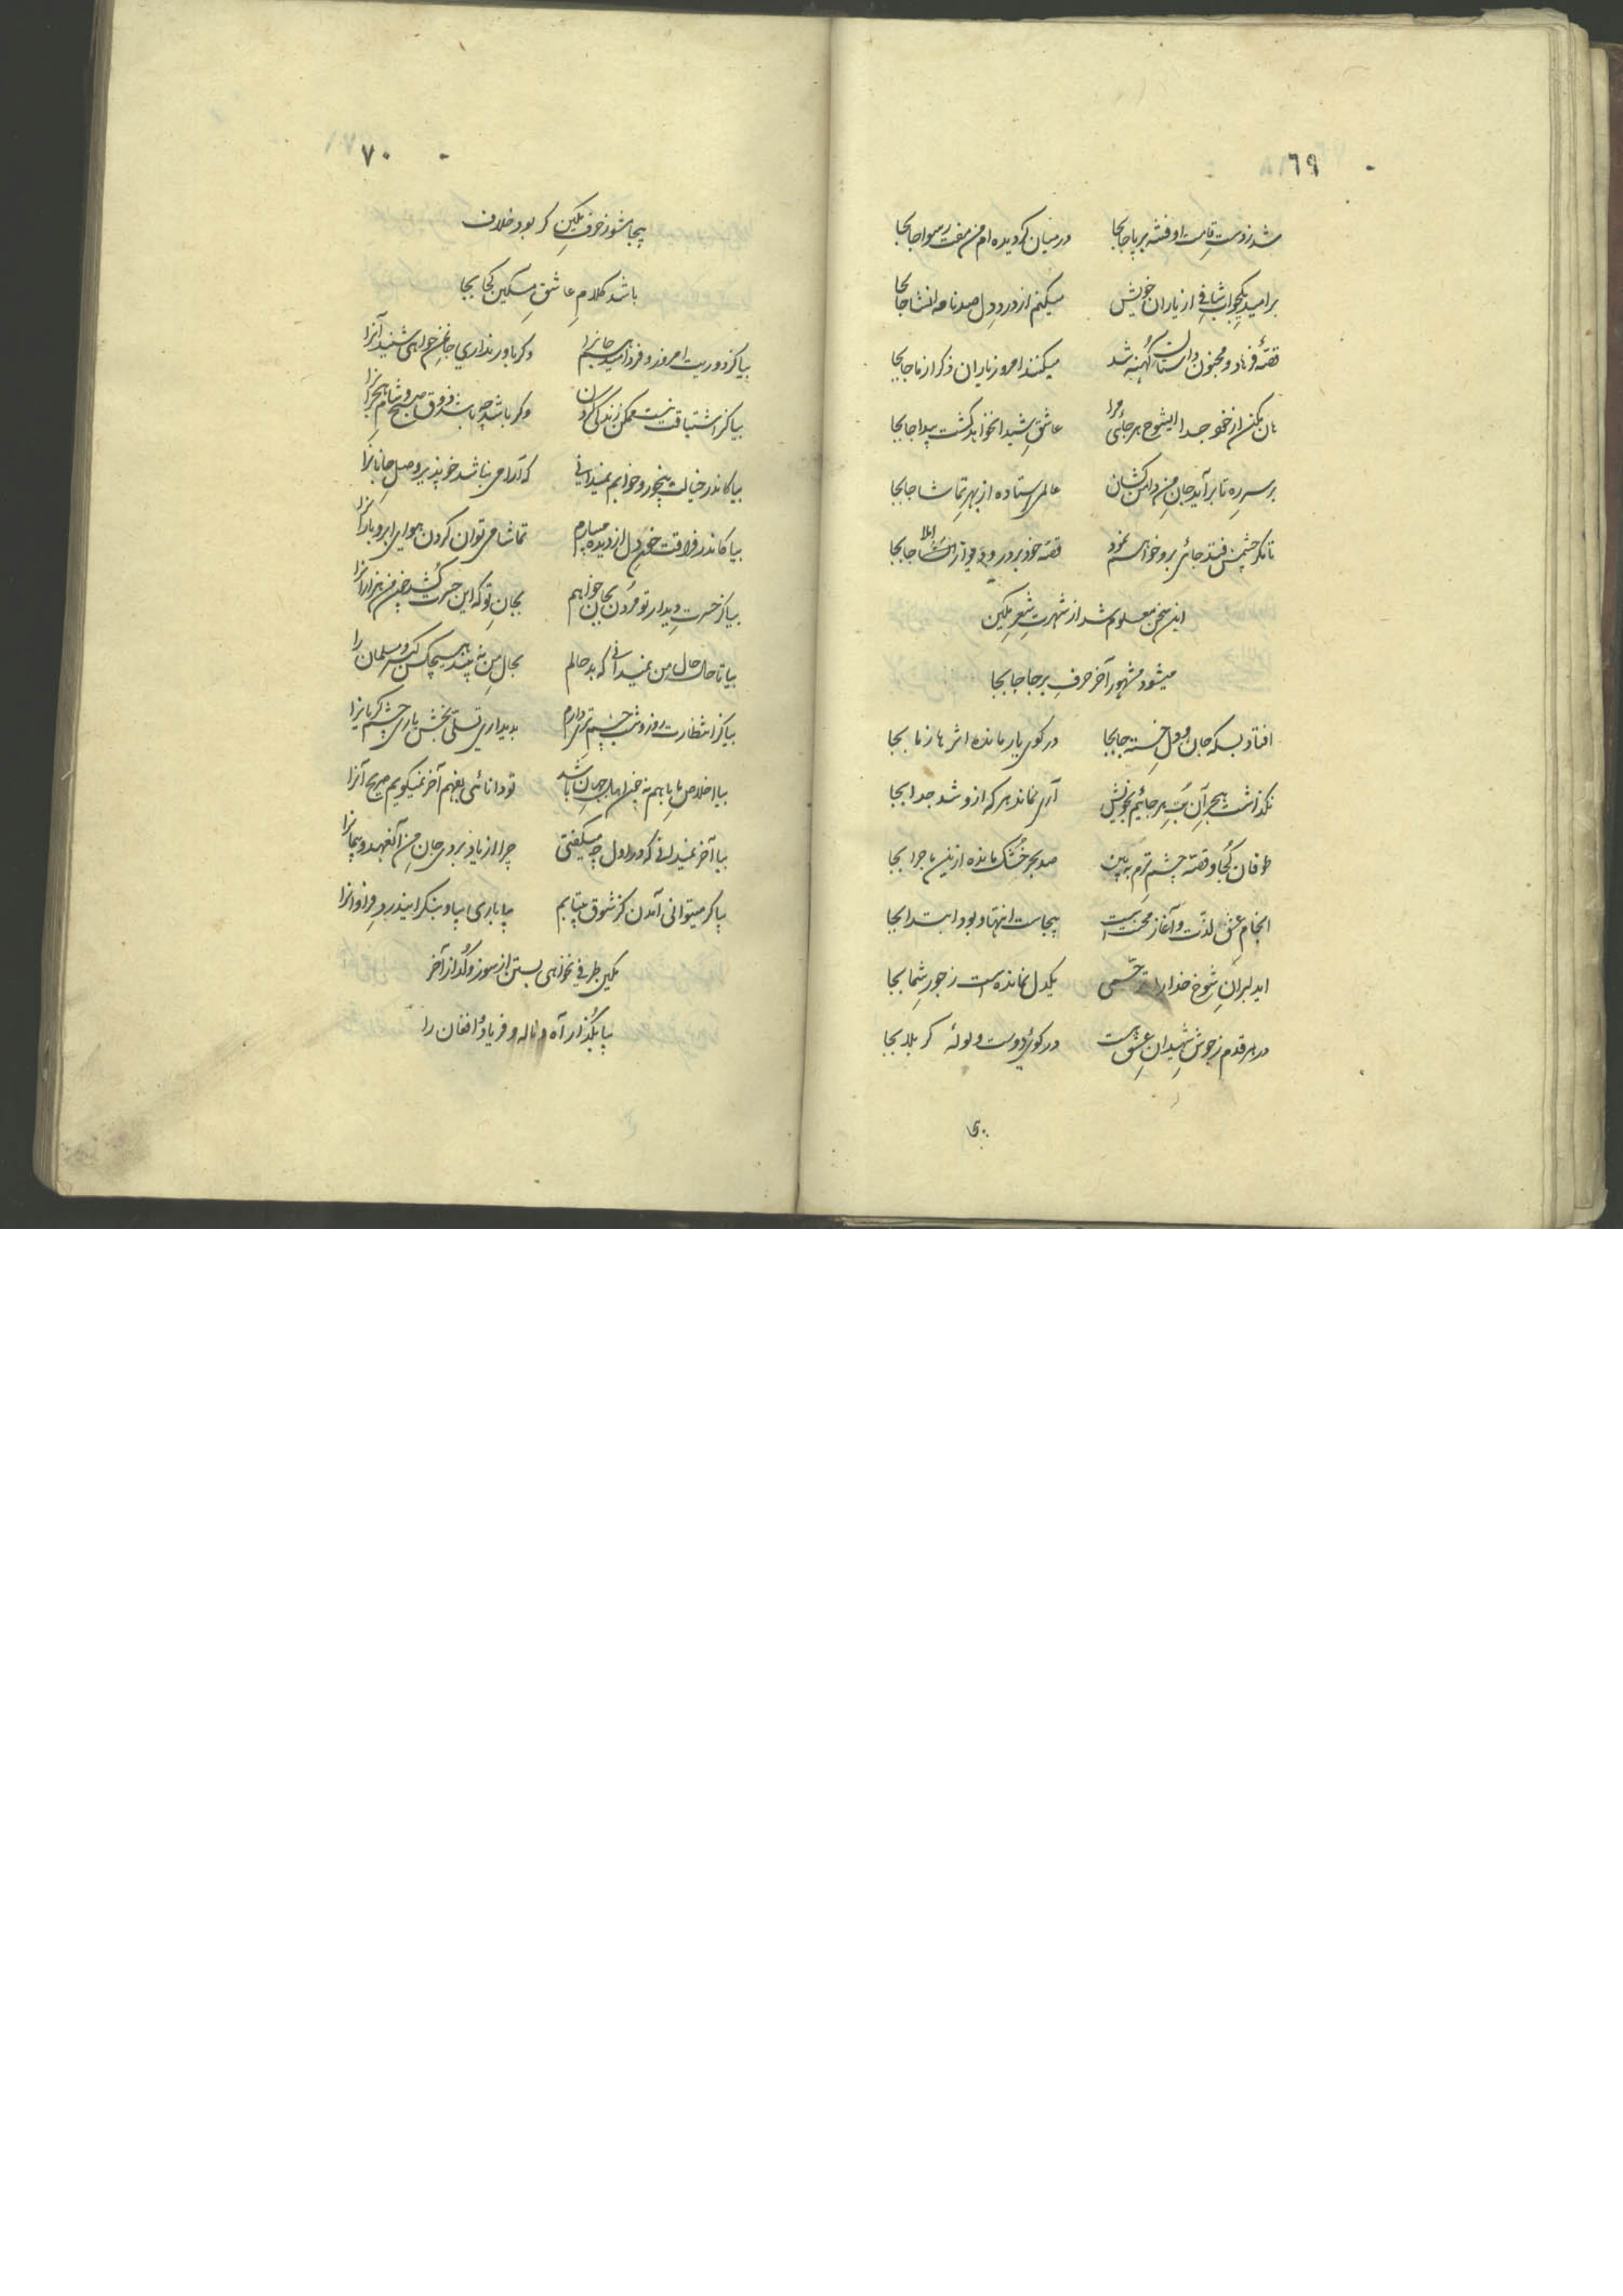 ٦٩
شد ز دست قامت او فتنه برپا جابجا در میان گردیده ام من مفت رسوا جابجا
بر امید یکجواب شافی از یاران خویش میکنم از درد دل صد نامه انشا جابجا
قصهٔ فرهاد و مجنون داستان کهنه شد میکنند امروز یاران ذکر از ما جابجا
هان مکن از خود جدا ایشوخ هرجائی مرا عاشق شیدا نخواهد گشت پیدا جابجا
بر سر ره تا برآید جان من دامن کشان عالمی استاده از بهر تماشا جابجا
تا مگر چشمش فتد جائی برو خواهم نمود قصه خود بر در و دیوار املا جابجا
این سخن معلوم شد از شهرت شعر مکین
میشود مشهور آخر حرف برجا جابجا
افتاد بسکه جان و دل خسته جابجا در کوی یار مانده اثرها ز ما بجا
نگذاشت هجر آن بت هرجائیم بخویش آری نماند هر که ازو شد جدا بجا
طوفان کجا و قصه چشم ترم به بین صد بحر خشک مانده ازین ماجرا بجا
انجام عشق لذت و آغاز محنت است بیجاست انتها و بود ابتدا بجا
ایدلبران شوخ خدا را ترحمی یکدل نمانده است ز جور شما بجا
در هر قدم ز جوش شهیدان عشق هست در کوی دوست ولولهٔ کربلا بجا
٧٠
بیجا مشو ز حرف مکین گر بود خلاف
باشد کلام عاشق مسکین کجا بجا
بیا کز دوریت امروز و فردا میدهم جانرا وگر باور نداری جان من خواهی شنید آنرا
بیا کز اشتیاقت نیست ممکن زندگی کردن وگر باشد چه باشد ذوق صبح و شام هجرانرا
بیا کاندر خیالت بیخور و خوابم نمیدانی که آرامی نباشد خو پذیر وصل جانانرا
بیا کاندر فراقت خون دل از دیده میبارم تماشا می توان کردن هوای ابر و بارانرا
بیا کز حسرت دیدار تو مردن بجان خواهم بجان تو که این حسرت کشد چون من هزارانرا
بیا تا حال حال من نمیدانی که بد حالم بحال من نه بیند هیچکس گبر و مسلمان را
بیا کز انتظارت روز و شب چشم تری دارم بدیداری تسلی بخش باری چشم گریانرا
بیا اخلاص ما باهم نه چون اهل جهان باشد تو دانائی بفهم آخر نمیگویم صریح آنرا
بیا آخر نمیدانی که در اول چه میگفتی چرا از یاد بردی جان من آنعهد و پیمانرا
بیا گر میتوانی آمدن کز شوق بیتابم بیا باری بیا و بنگر اینذرد فراوانرا
مکین طرفی نخواهی بستن از سوز و گداز آخر
بیا بگذار آه و ناله و فریاد و افغان را